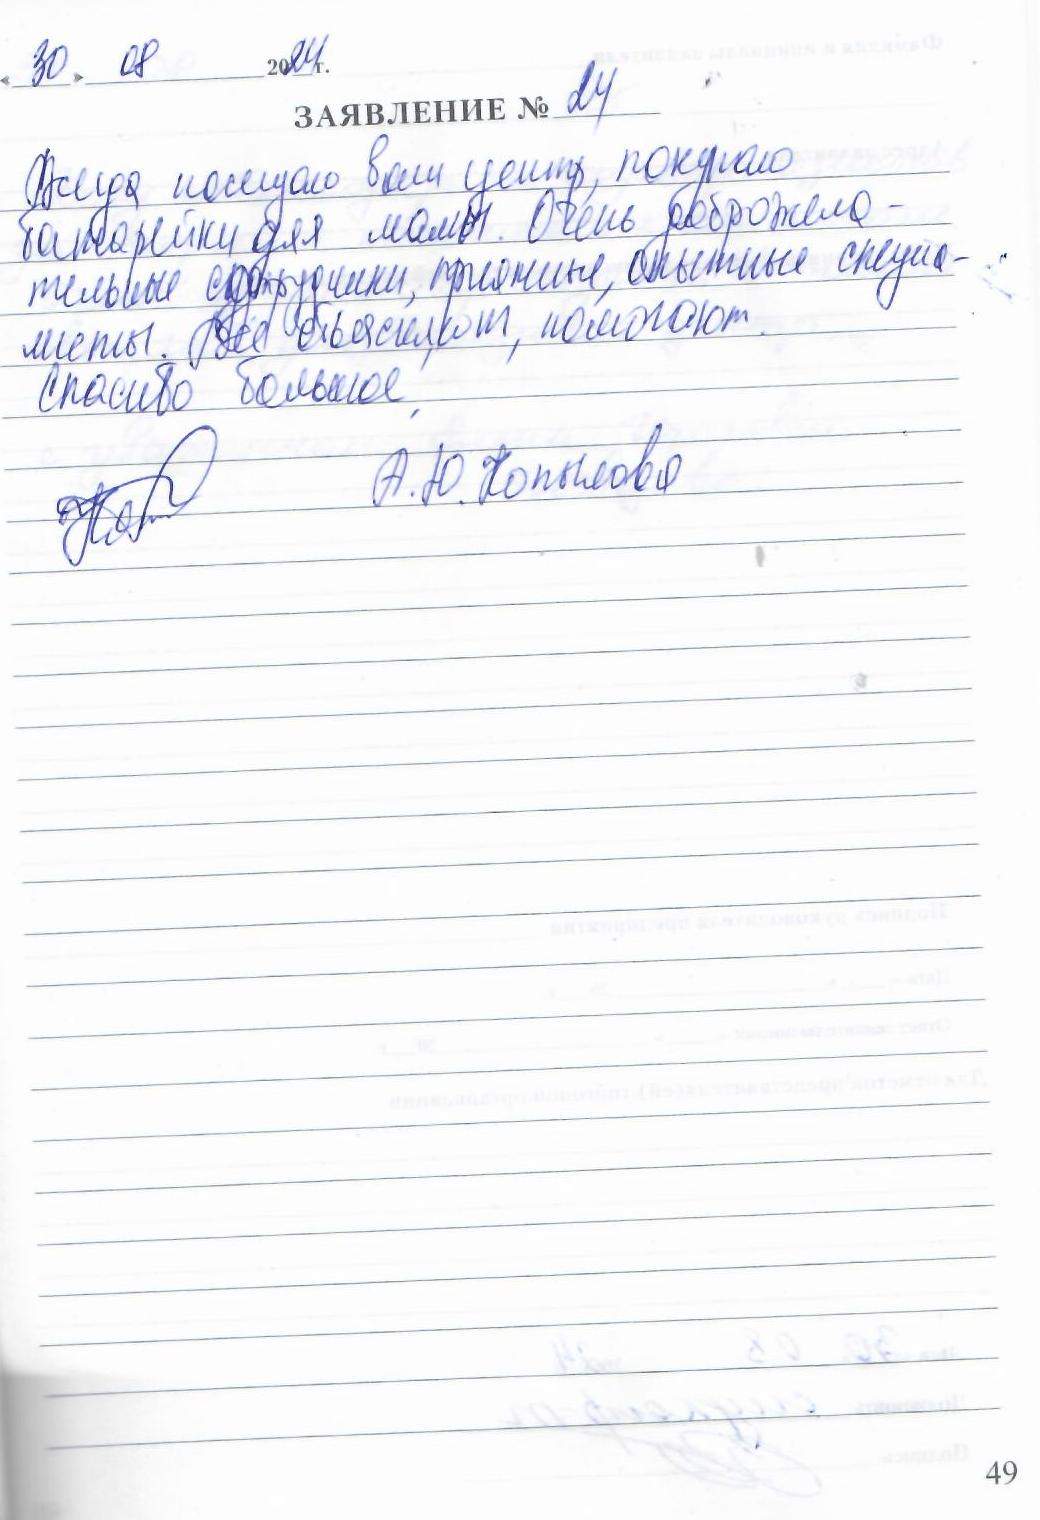 « 30 » 08 2024 г.
ЗАЯВЛЕНИЕ № 24
Всегда посещаю ваш центр, покупаю
батарейки для мамы. Очень доброжела-
тельные сотрудники, приятные, опытные специа-
листы. Всё объясняют, помогают.
Спасибо большое
А.Ю. Копылова
49